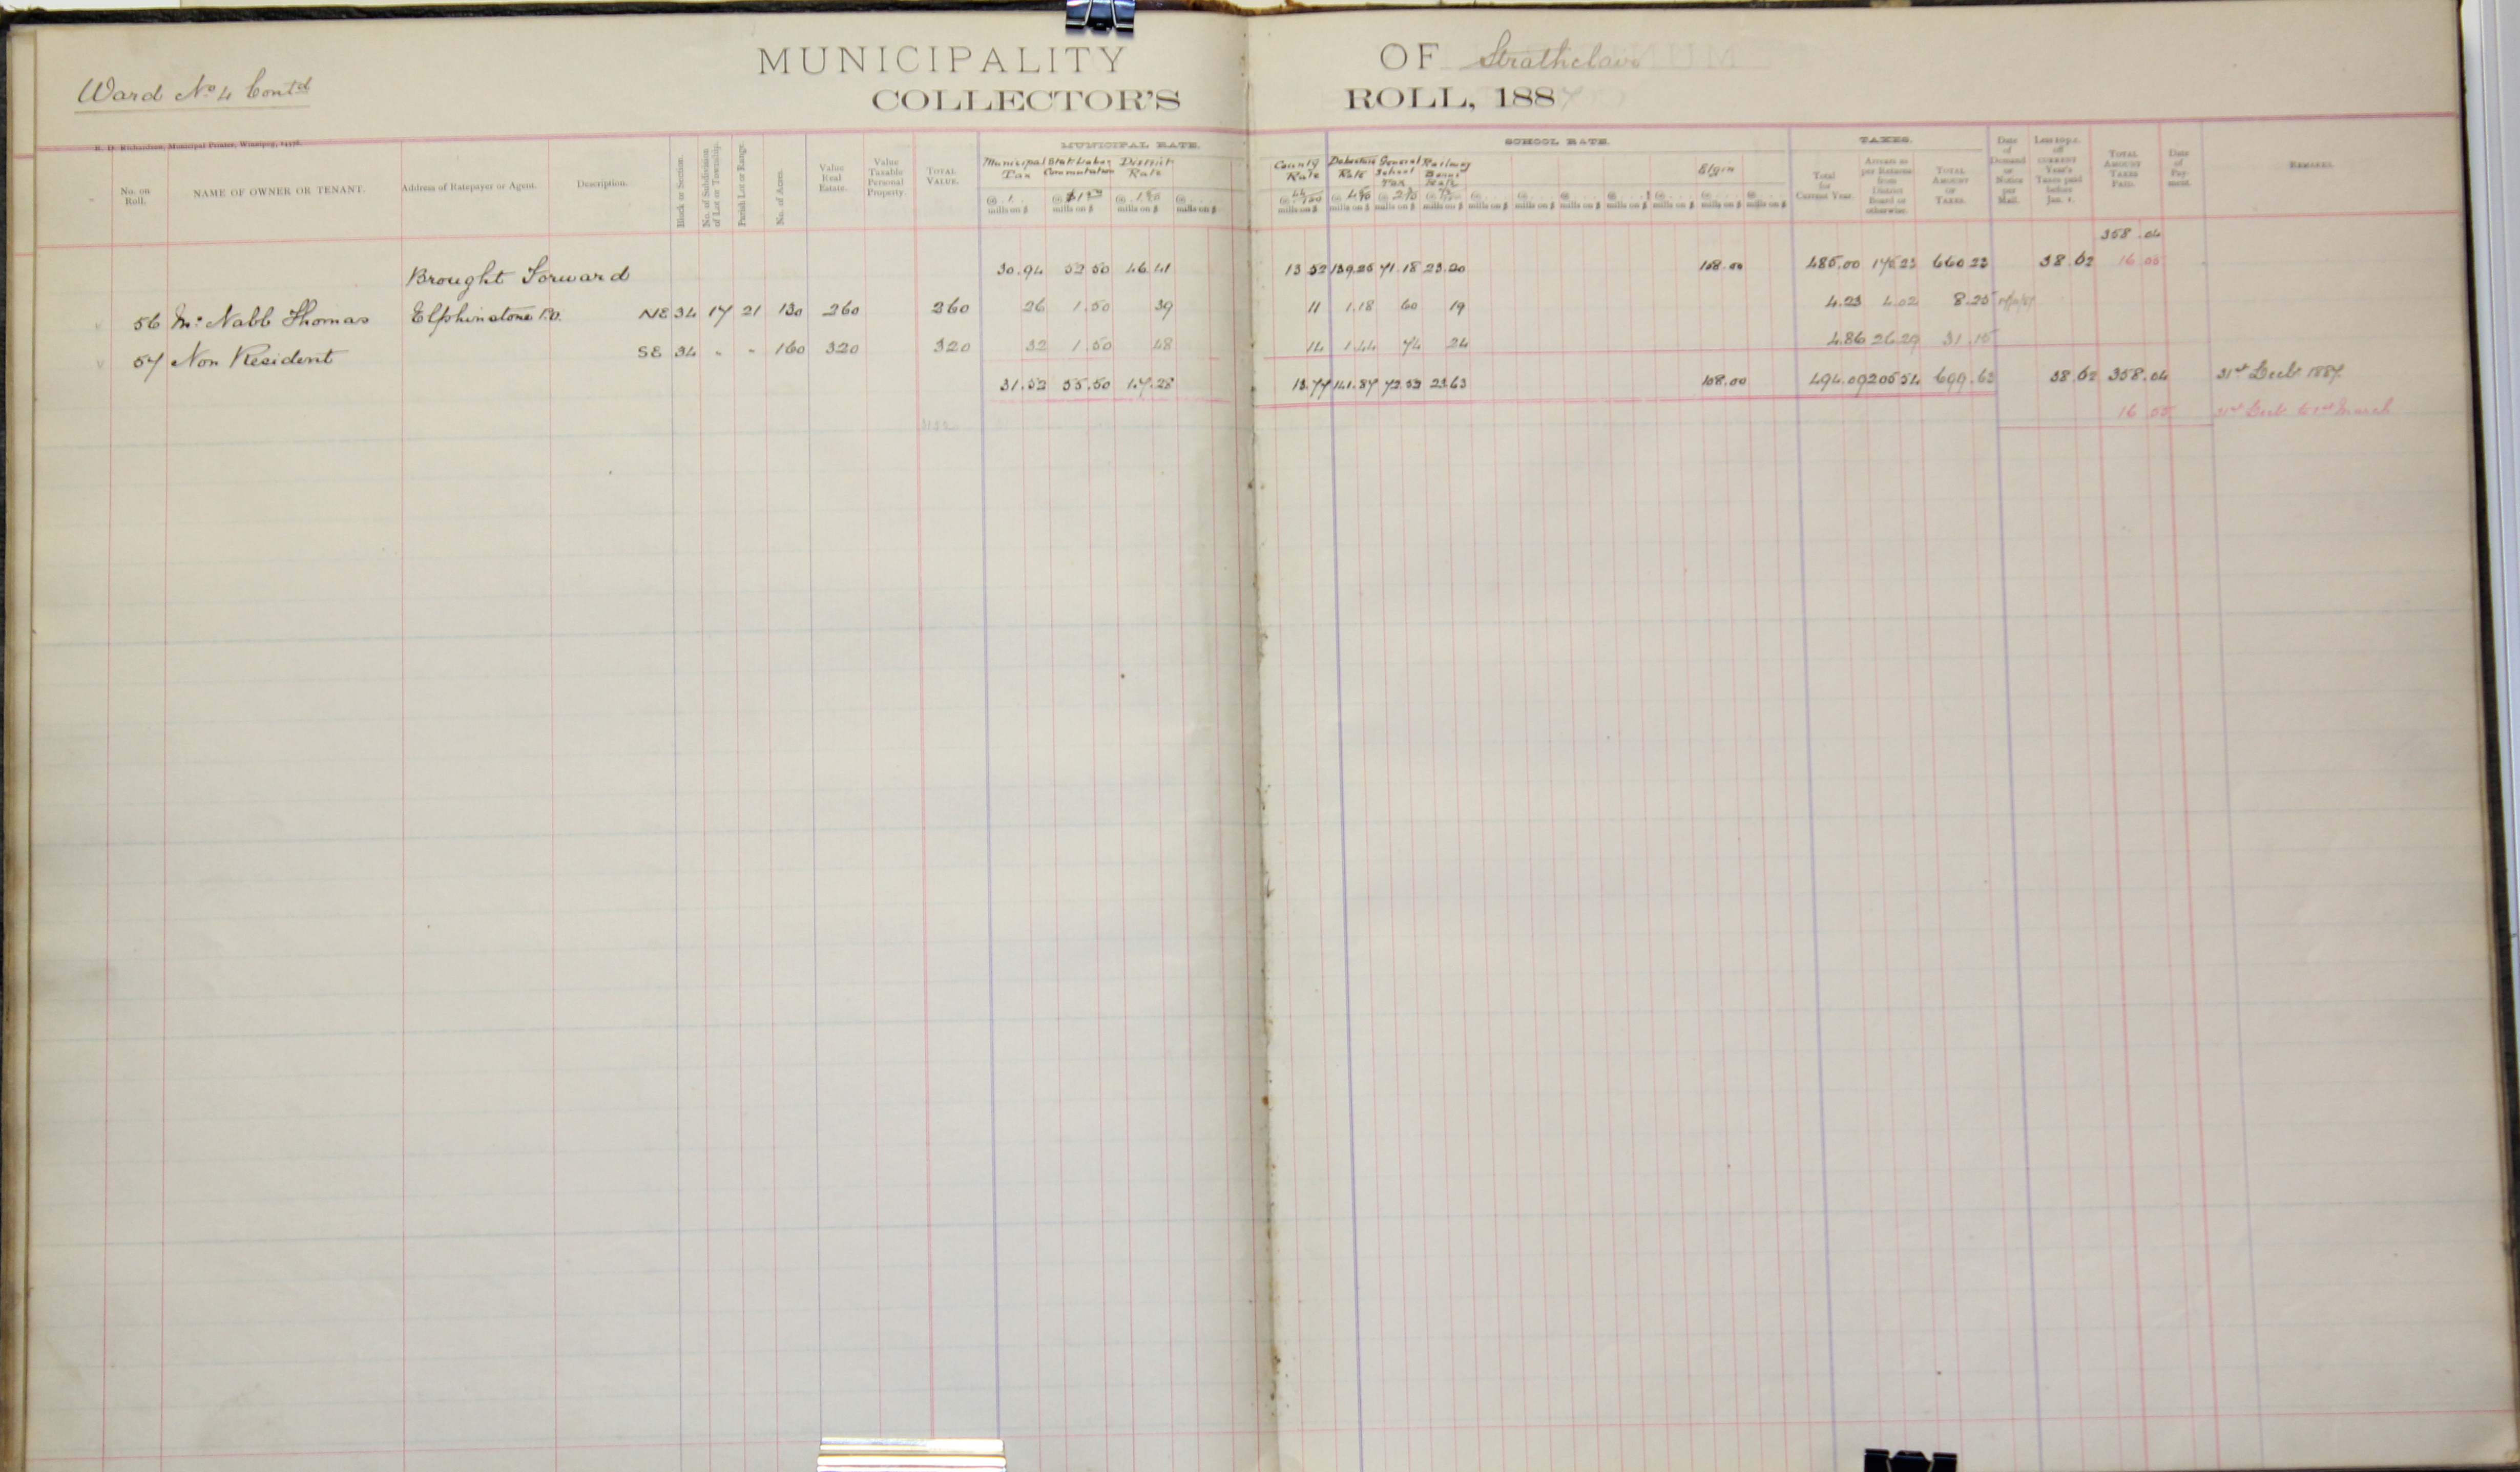 MUNICIPALITY OF Strathclair
Ward No 4 Contd
COLLECTOR'S ROLL, 1887
R. D. Richardson, Municipal Printer, Winnipeg,
MUNICIPAL RATE. SCHOOL RATE. TAXES.
No. on Roll.
NAME OF OWNER OR TENANT.
Address of Ratepayer or Agent.
Description.
Block or Section.
No. of Subdivision of Lot or Township.
Parish Lot or Range.
No. of Acres.
Value Real Estate.
Value Taxable Personal Property.
TOTAL VALUE.
Municipal Tax @ 1 mills on $
Stat Labor Commutation @ mills on $
District Rate @ mills on $
@ mills on $
County Rate @ mills on $
Debenture Rate @ mills on $
General School Tax @ mills on $
Railway Bonus @ mills on $
@ mills on $
@ mills on $
@ mills on $
@ mills on $
@ mills on $
Elgin @ mills on $
@ mills on $
Total for Current Year.
Arrears as per Returns from District Board or otherwise.
TOTAL AMOUNT OF TAXES.
Date of Demand or Notice per Mail.
Less 10 p.c. off CURRENT Year's Taxes paid before Jan. 1.
TOTAL AMOUNT TAXES PAID.
Date of Payment.
REMARKS.
358.04
Brought Forward 30.94 52 50 46.41 13 52 139.25 71.18 23.20 108.00 485.00 175 23 660 23 38.62 16 05
56 Mc Nabb Thomas Elphinstone P.O. NE 34 17 21 130 260 260 26 1.50 39 11 1.18 60 19 4.23 4.02 8.25
57 Non Resident SE 34 " " 160 320 320 32 1.50 48 14 1.44 74 24 4.86 26.29 31.15
31.52 55.50 47.28 13.77 141.87 72.52 23.63 108.00 494.09 205 54 699.63 38.62 358.04 31st Decb 1887
16 05 31st Decb to 1st March